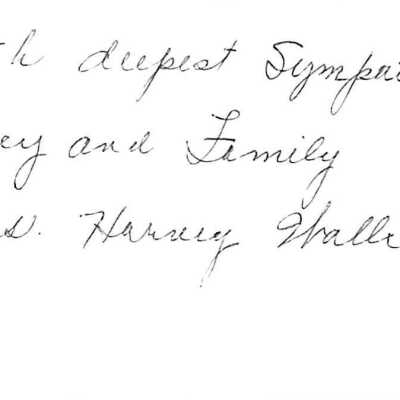 th deepest Sympa
ey and Family
s. Harvey Walle